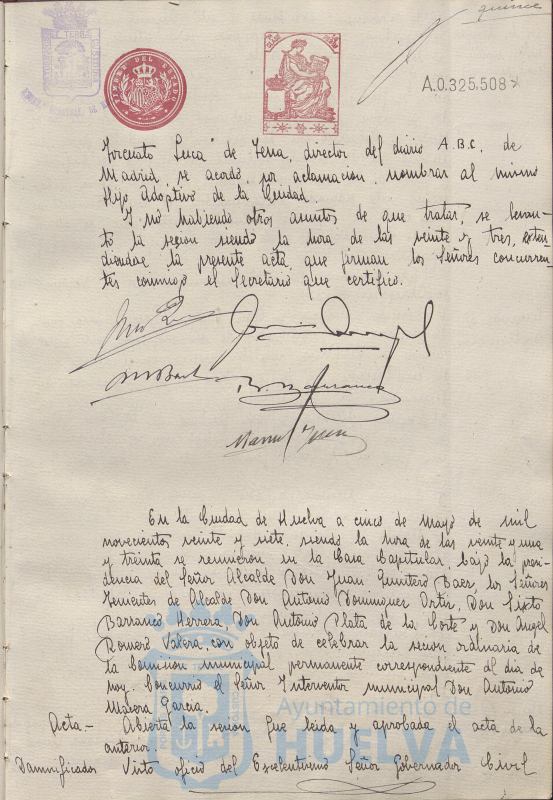 quince
TIMBRE DEL ESTADO
A.0.325.508*
Torcuato Luca de Tena, director del diario A.B.C. de
Madrid se acordo por aclamacion, nombrar al mismo
Hijo Adoptivo de la Ciudad.
Y no habiendo otros asuntos de que tratar, se levan-
tó la sesion siendo la hora de las veinte y tres, exten
diendose la presente acta, que firman los Señores concurren
tes conmigo el Secretario que certifico.
En la Ciudad de Huelva a cinco de Mayo de mil
novecientos veinte y siete, siendo la hora de las veinte y una
y treinta se reunieron en la Casa Capitular, bajo la presi
dencia del Señor Alcalde Don Juan Quintero Baez, los Señores
Tenientes de Alcalde Don Antonio Dominguez Ortiz, Don Sixto
Barranco Herrera, Don Antonio Plata de la Corte y Don Angel
Romero Valera, con objeto de celebrar la sesion ordinaria de
la Comision municipal permanente correspondiente al dia de
hoy. Concurrió el Señor Interventor municipal Don Antonio
Garcia.
Acta.- Abierta la sesion fue leida y aprobada el acta de la
anterior.
Damnificador Visto oficio del Excelentisimo Señor Gobernador Civil
Ayuntamiento de
HUELVA